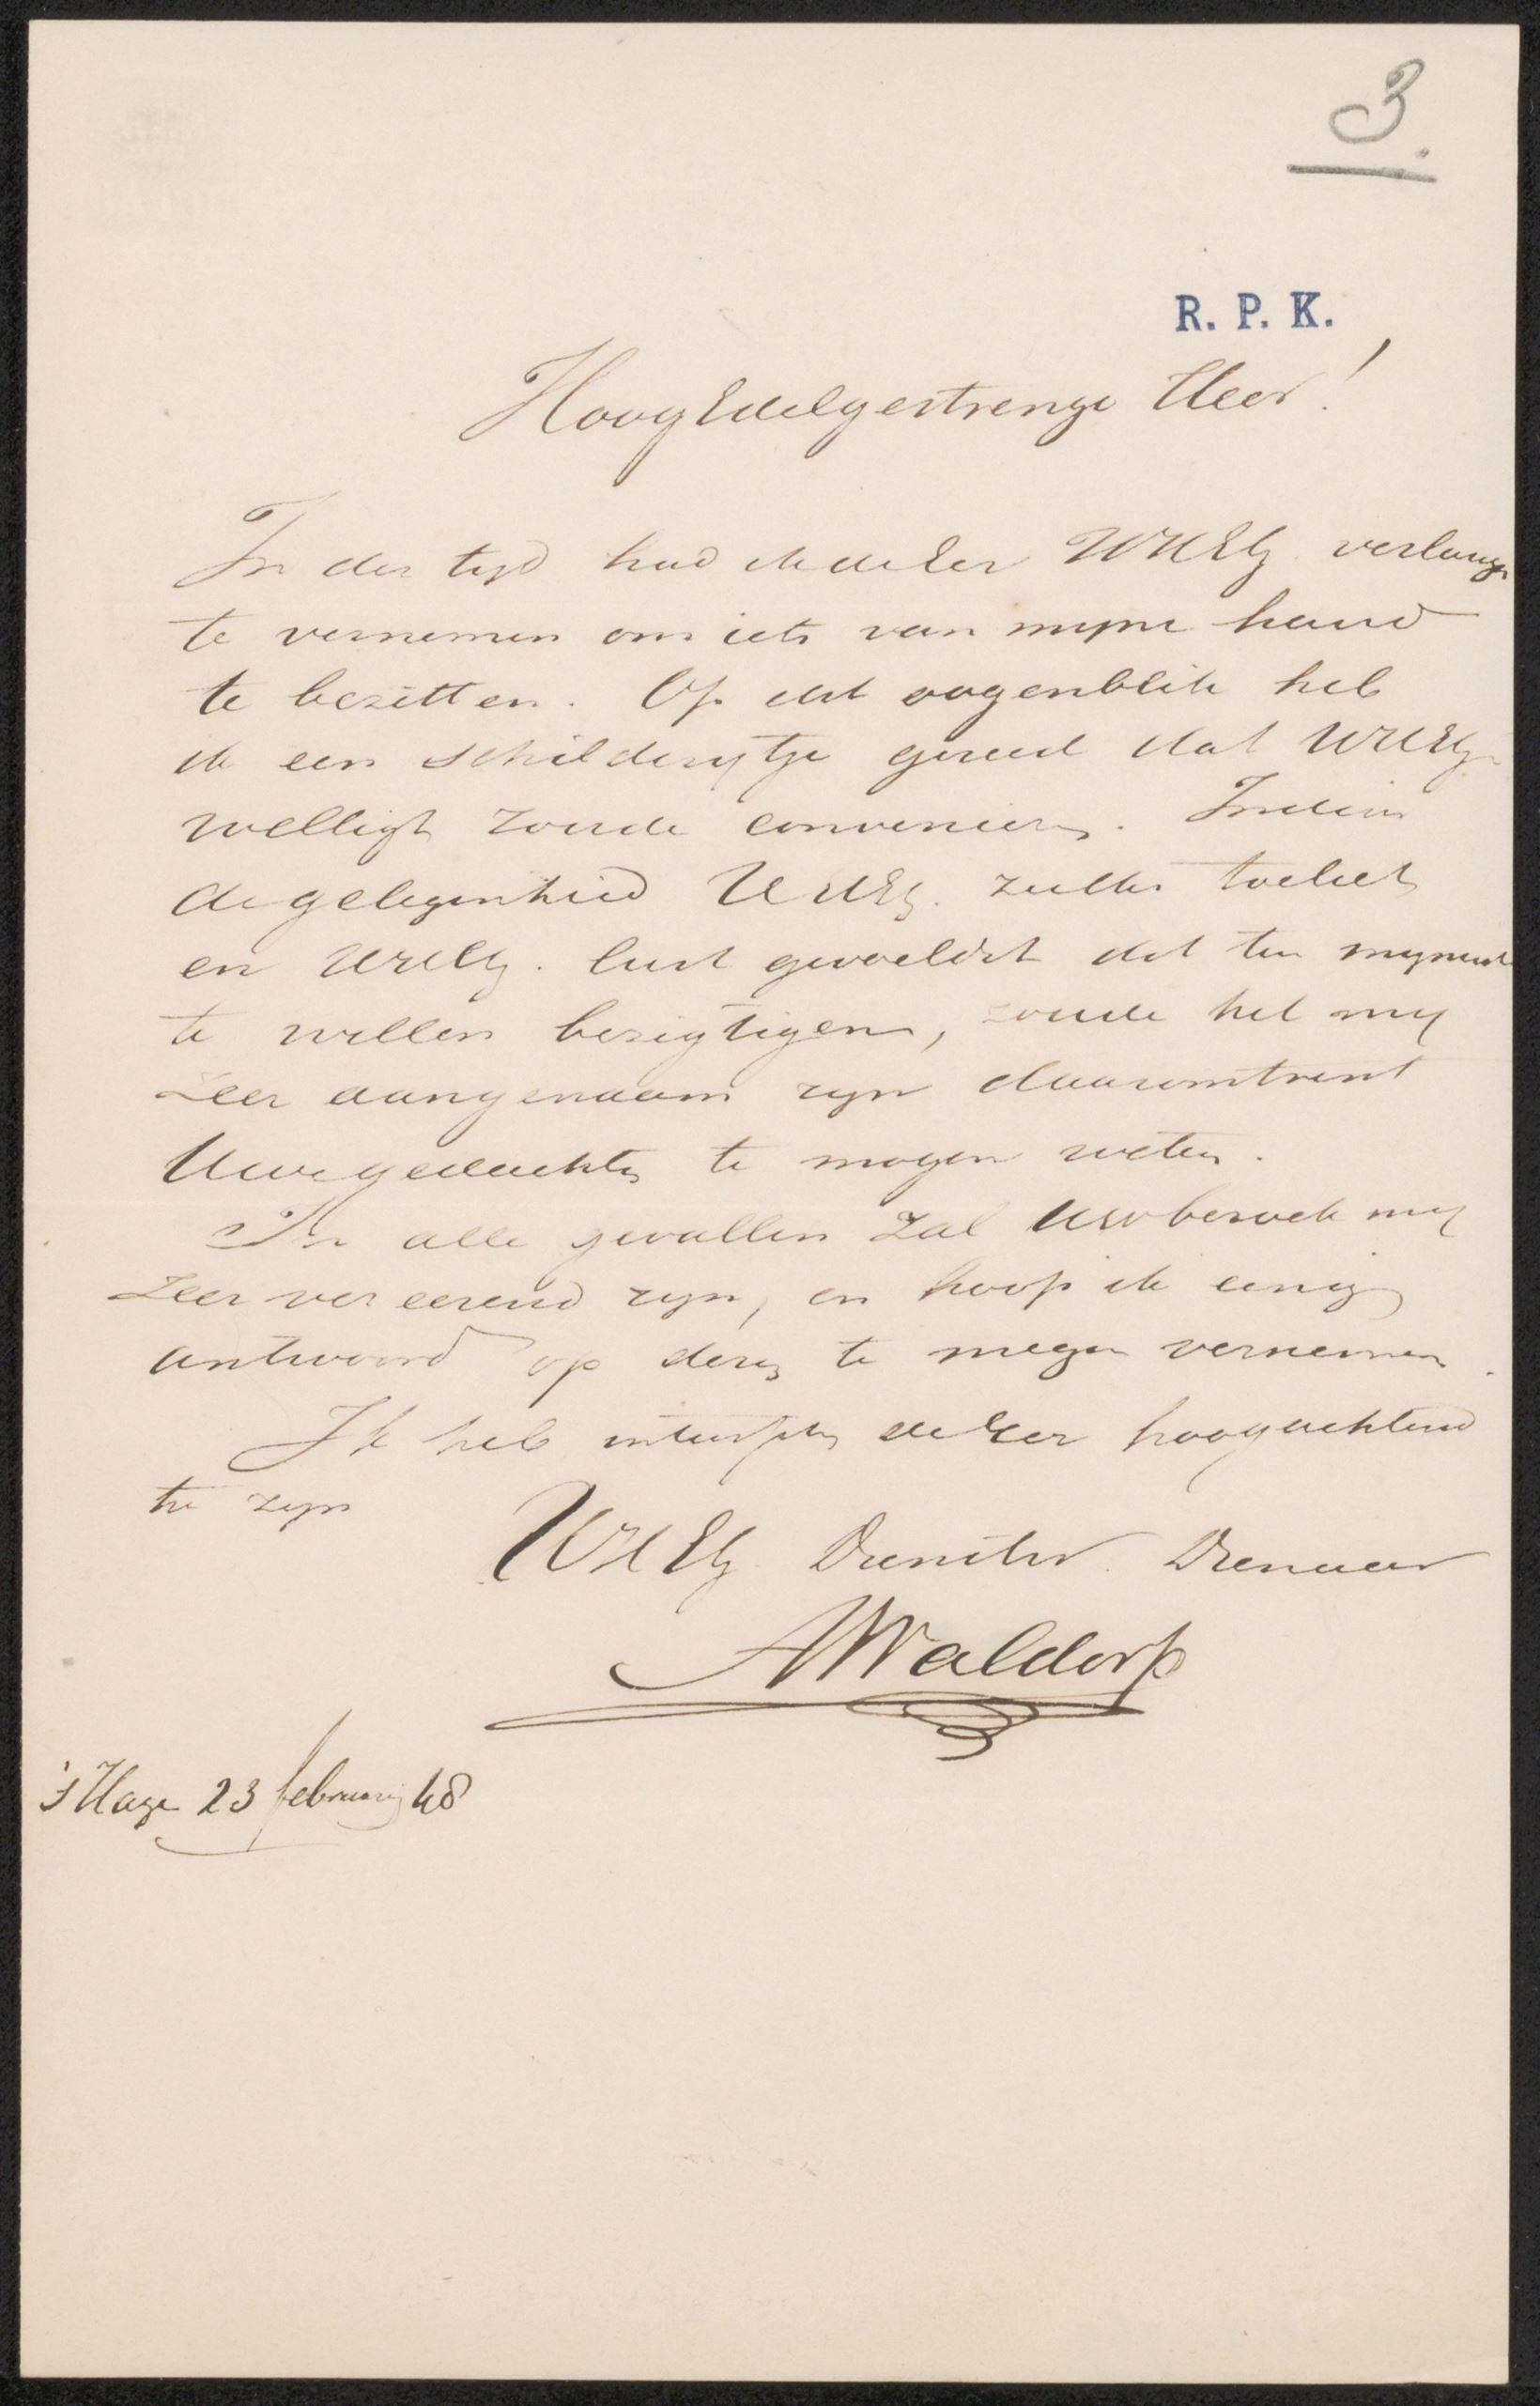 3.
R. P. K.
HoogEdelgestrenge Heer!
In der tyd had ik de eer UHEG. verlangen
te vernemen om iets van myne hand
te bezitten. Op dit oogenblik heb
ik een schilderytje gereed dat UHEG.
welligt zoude convenieren. Indien
de gelegenheid UHEG. zulks toeliet
en UHEG. lust gevoeldet dit ten mynent
te willen bezigtigen, zoude het my
zeer aangenaam zyn daaromtrent
Uwe gedachten te mogen weten.
In alle gevallen zal Uw bezoek my
zeer vereerend zyn, en hoop ik eenig
antwoord op dezen te mogen vernemen.
Ik heb intusschen de eer hoogachtend
te zyn
UHEG. Dienstw. Dienaar
A Waldorp
's Hage 23 february 48